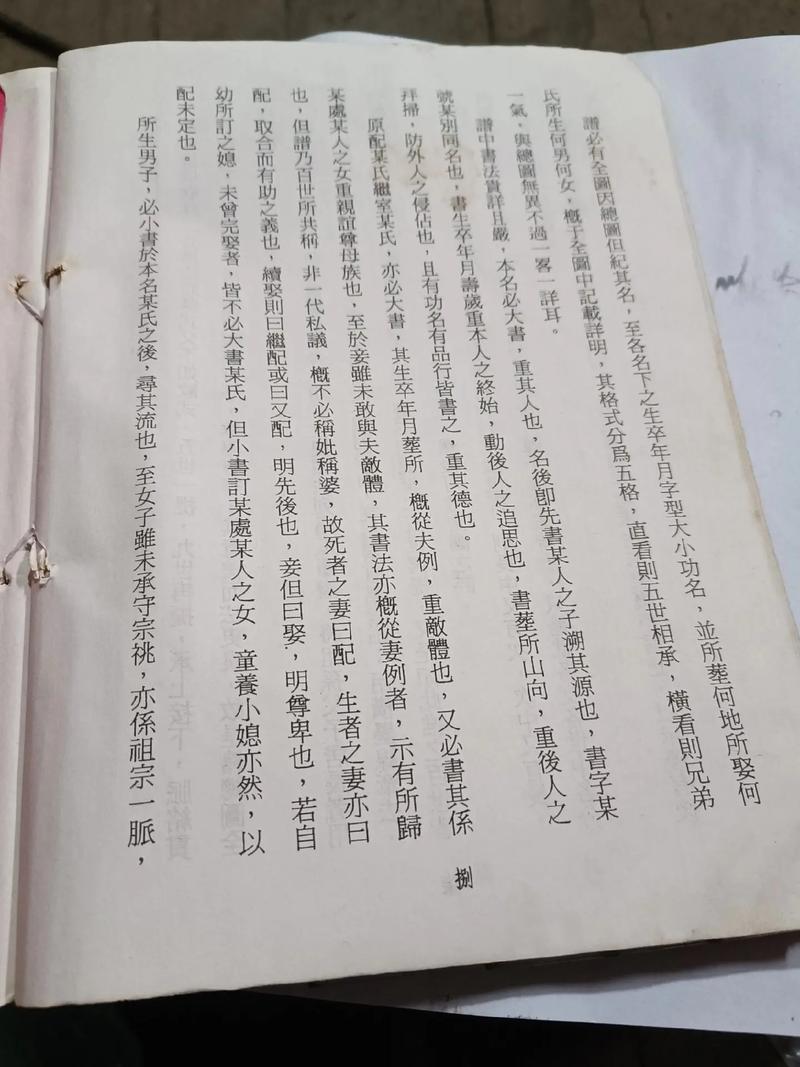 譜必有全圖因總圖但紀其名，至各名下之生卒年月字型大小功名，並所葬何地所娶何
氏所生何男何女，概于全圖中記載詳明，其格式分爲五格，直看則五世相承，橫看則兄弟
一氣，與總圖無異不過一客一詳耳。
譜中書法貴詳且嚴，本名必大書，重其人也，名後卽先書某人之子溯其源也，書字某
號某別同名也，書生卒年月壽歲重本人之終始，動後人之追思也，書葬所山向，重後人之
拜掃，防外人之侵佔也，且有功名有品行皆書之，重其德也。
原配某氏繼室某氏，亦必大書，其生卒年月葬所，概從夫例，重敵體也，又必書其係
某處某人之女重親誼尊母族也，至於妾雖未敢與夫敵體，其書法亦概從妻例者，示有所歸
也，但譜乃百世所共稱，非一代私議，概不必稱妣稱婆，故死者之妻曰配，生者之妻亦曰
配，取合而有助之義也，續娶則曰繼配或曰又配，明先後也，妾但曰娶，明尊卑也，若自
幼所訂之媳，未曾完娶者，皆不必大書某氏，但小書訂某處某人之女，童養小媳亦然，以
配未定也。
所生男子，必小書於本名某氏之後，尋其流也，至女子雖未承守宗祧，亦係祖宗一脈，
捌